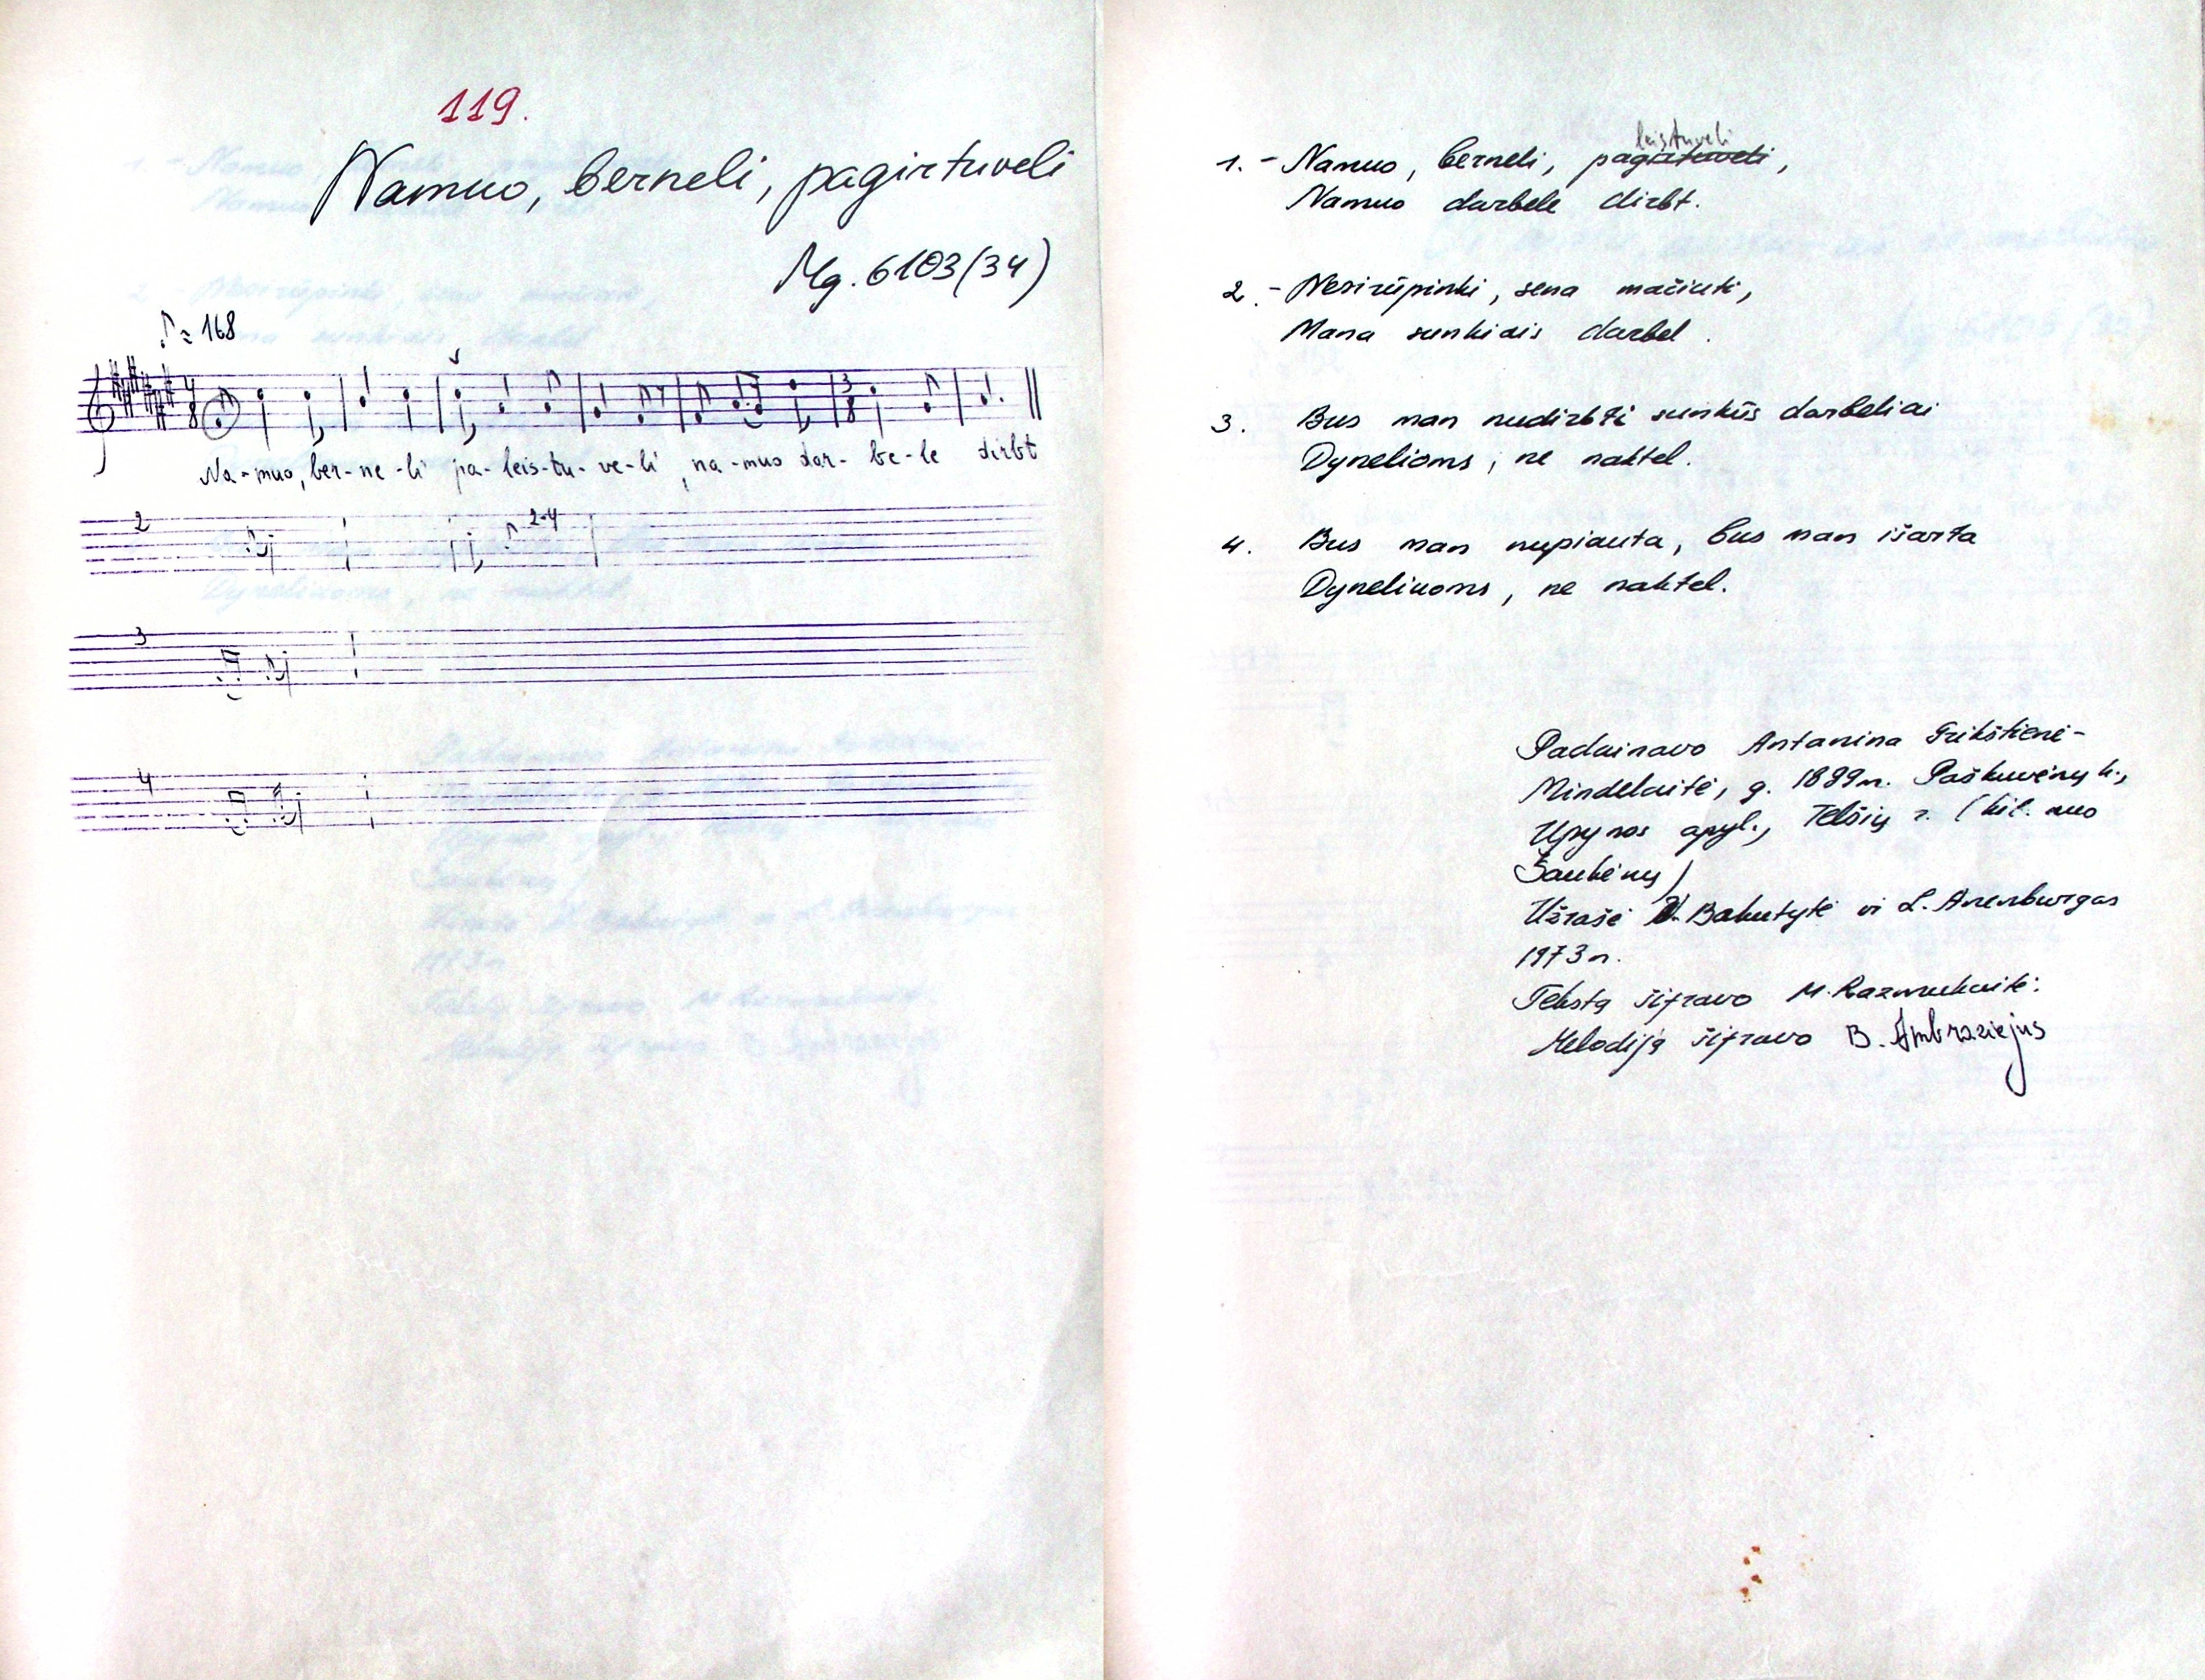 119.
Namuo, berneli, pagirtuveli
Mg. 6103(34)
♪ ≈ 168
4
8
3
8
Na-muo, ber-ne-li pa-leis-tu-ve-li, na-muo dar-be-le dirbt
2
2-4
3
4
leistuveli
1. - Namuo, berneli, pagirtuveli,
Namuo darbele dirbt.
2. - Nesirūpinki, sena močiuti,
Mana sunkiais darbel.
3. Bus man nudirbti sunkūs darbeliai
Dynelioms, ne naktel.
4. Bus man nupiauta, bus man išarta
Dyneliuoms, ne naktel.
Padainavo Antanina Grikštienė-
Mindelaitė, g. 1899 m. Paškuvėnų k.,
Upynos apyl., Telšių r. (kil. nuo
Šaukėnų)
Užrašė Bakutytė ir L. Anenburgas
1973 m.
Tekstą šifravo M. Razmukaitė.
Melodiją šifravo B. Ambraziejus